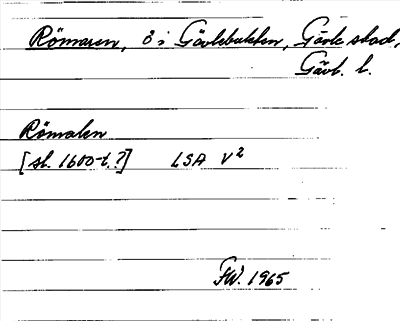 Römaren, ö i Gävlebukten, Gävle stad,
Gävl. l.
Römalen
[sl. 1600-t.?] LSA V²
FW. 1965